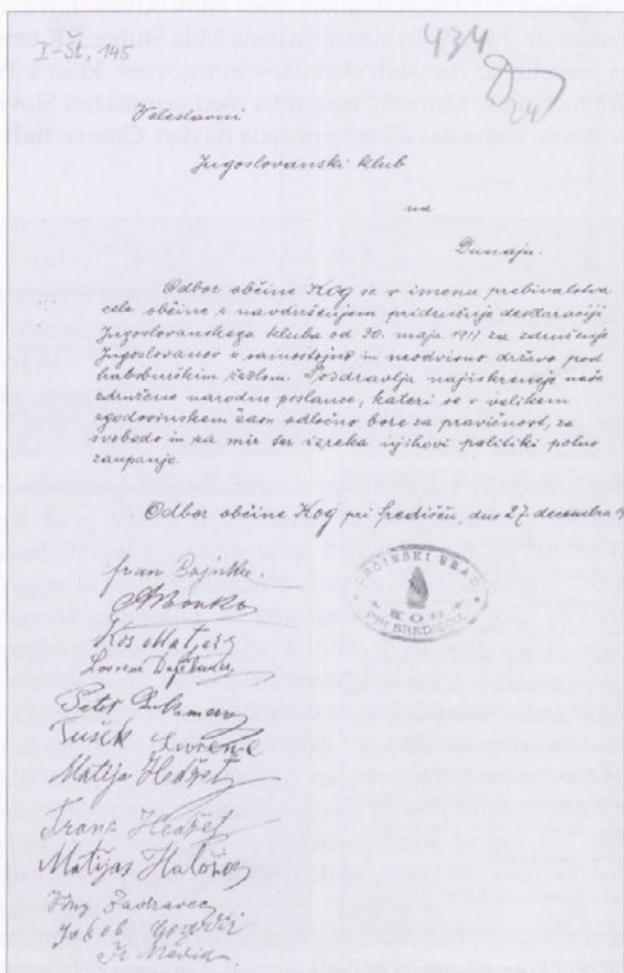 I-Št. 145
434
Veleslavni
Jugoslovanski klub
na
Dunaju.
Odbor občine Kog se v imenu prebivalstva
cele občine z navdušenjem pridružuje deklaraciji
Jugoslovanskega kluba od 30. maja 1917 za združenje
Jugoslovanov v samostojno in neodvisno državo pod
habsburškim žezlom. Pozdravlja najiskreneje naše
združene narodne poslance, kateri se v velikem
zgodovinskem času odločno bore za pravičnost, za
svobodo in za mir ter izreka njihovi politiki polno
zaupanje.
Odbor občine Kog pri Središču, dne 27. decembra
OBČINSKI URAD
KOG
PRI SREDIŠČU
Fran
Kos Matjaš
Lovrenc
Peter
Tušek Lovrenc
Matija Hedžet
Franc Hedžet
Matijas
Padravec
Jakob